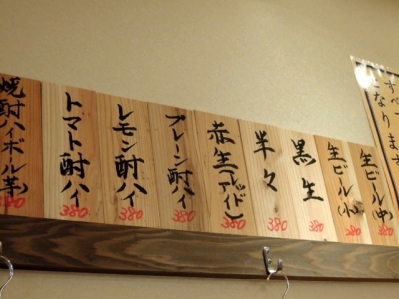 生ビール(中)
380
生ビール(小)
380
黒生
380
半々
380
赤生(レッドアイ)
380
プレーン酎ハイ
380
レモン酎ハイ
380
トマト酎ハイ
380
焼酎ハイボール(芋)
380
なります